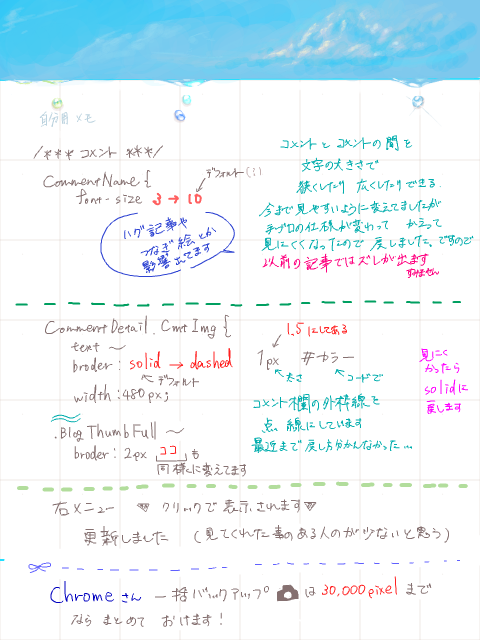 自分用メモ
/*** コメント ***/
CommentName {
font-size 3 → 10
デフォルト(:)
ハグ記事や
つなぎ絵とか
影響出てます
コメントとコメントの間を
文字の大きさで
狭くしたり 広くしたりできる.
今まで見やすいように変えてましたが
手ブロの仕様が変わって かえって
見にくくなったので 戻しました、ですので
以前の記事ではズレが出ます
すみません
CommentDetail .CmtImg {
text 〜
broder: solid → dashed
デフォルト
width:480px;
1.5にしてある
1px #カラー
太さ コードで
コメント欄の外枠線を
点線にしています
最近まで戻し方わかんなかった…
見にく
かったら
solidに
戻します
.BlogThumbFull 〜
broder: 2px ココ も
同様に変えてます
右メニュー ♥ クリックで表示されます♥
更新しました (見てくれた事のある人のが少ないと思う)
Chromeさん 一括バックアップ は 30,000pixel まで
なら まとめて おけます!